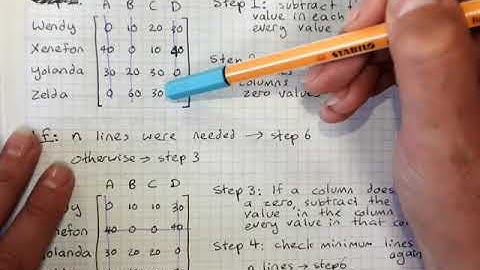 A B C D
Wendy 0 10 20 30
Xenefon 40 0 10 40
Yolanda 30 20 30 0
Zelda 0 60 30
Step 1: subtract
value in each
every value
STABILO
columns
zero values
If: n lines were needed → step 6
otherwise → step 3
A B C D
0 10 10 30
40 0 0 40
30 20 20 0
Step 3: If a column does
a zero, subtract the
value in the column
every value in that
Step 4: check minimum lines
again
n lines → step 6